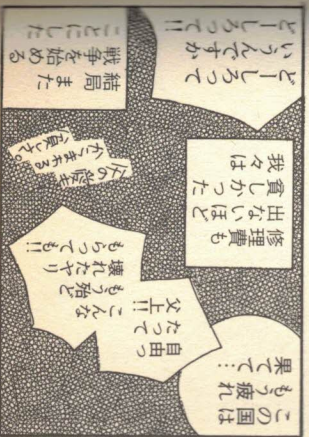 この国は
もう疲れ
果てて…
自由っ
たって
父上!!
こんな
もう殆ど
壊れたヤリ
もらっても!!
修理費も
出ないほど
貧しかった
我々は
どーしろって
いうんですか
どーしろって!!
結局また
戦争を始める
ことにした